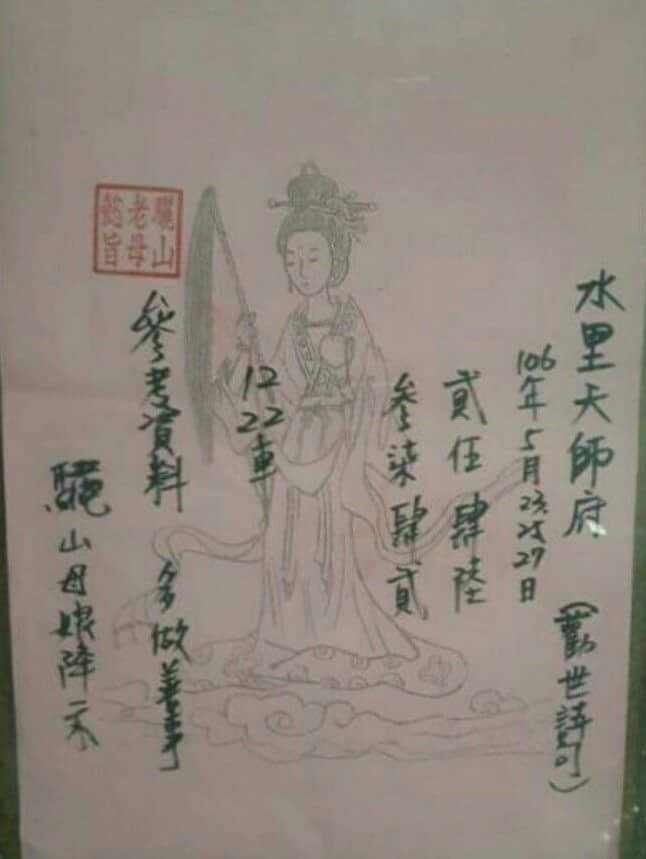 水里天師府
(勸世詩句)
106年5月23.25.27日
貳伍肆陸
參柒肆貳
12
22車
參考資料 多做善事
驪山母娘降示
驪山
老母
懿旨